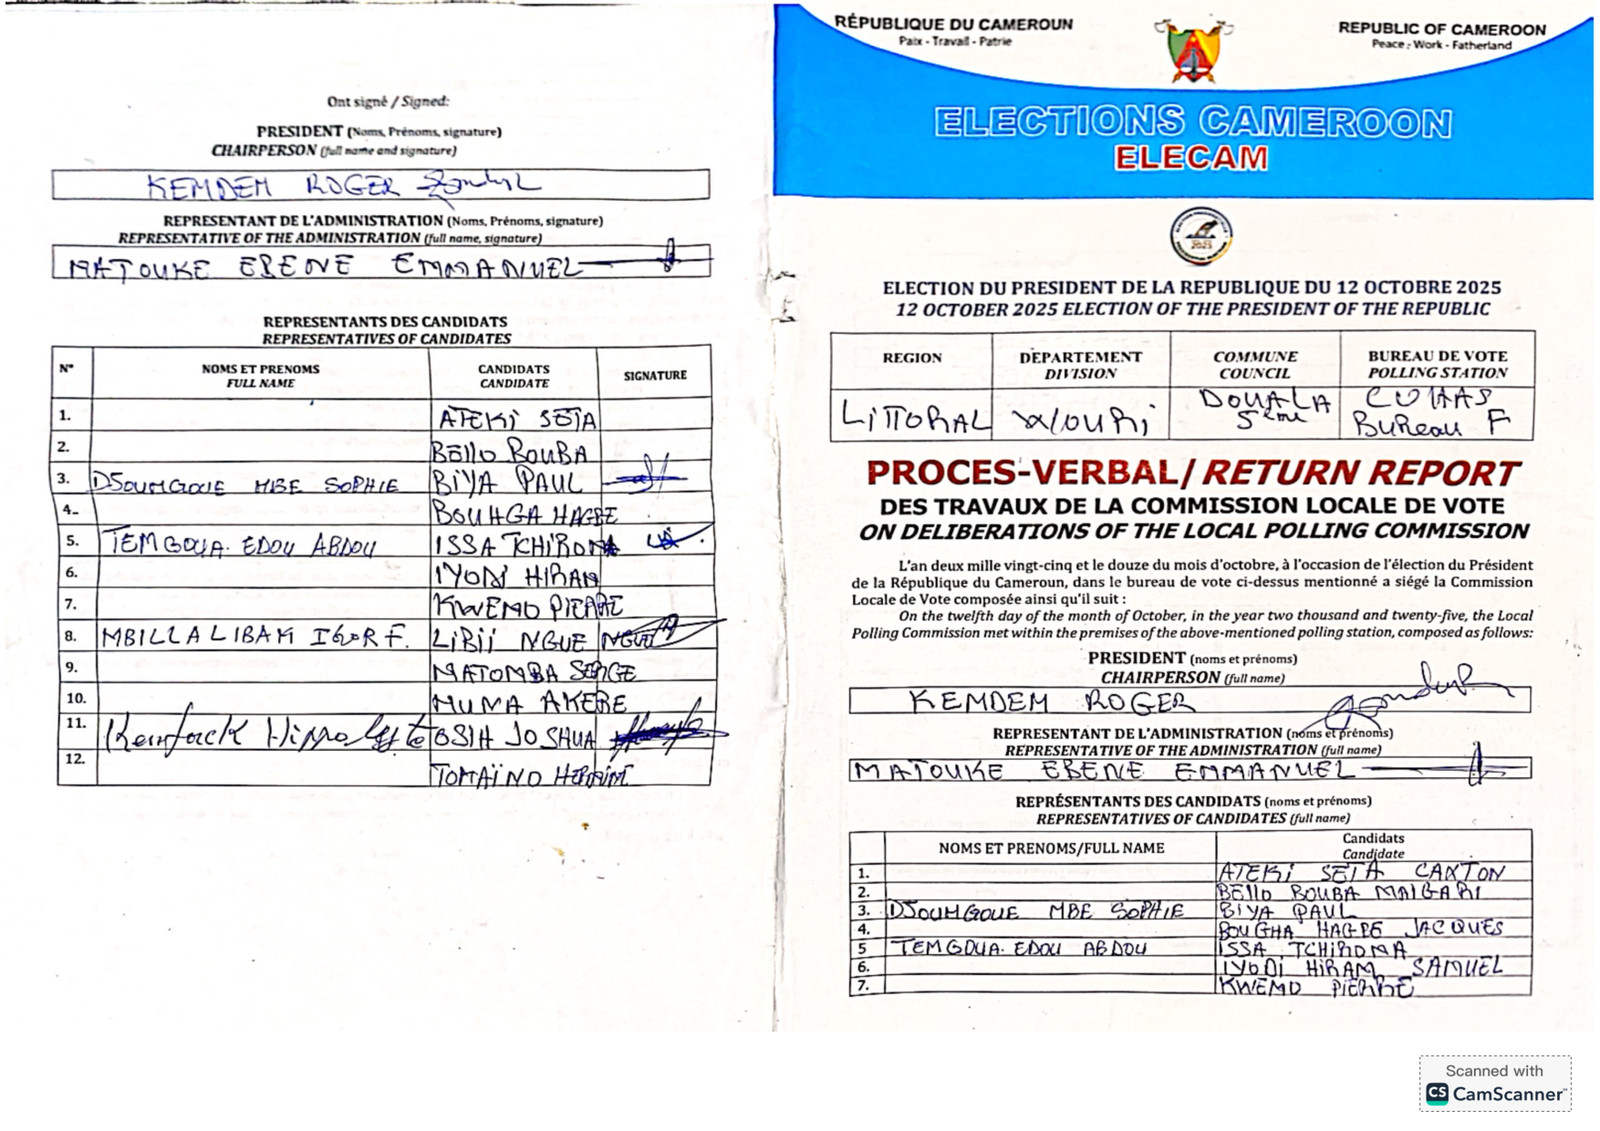 Ont signé / Signed:
PRESIDENT (Noms, Prénoms, signature)
CHAIRPERSON (full name and signature)
KEMDEM ROGER
REPRESENTANT DE L'ADMINISTRATION (Noms, Prénoms, signature)
REPRESENTATIVE OF THE ADMINISTRATION (full name, signature)
MATOUKE EBENE EMMANUEL
REPRESENTANTS DES CANDIDATS
REPRESENTATIVES OF CANDIDATES
N° NOMS ET PRENOMS FULL NAME CANDIDATS CANDIDATE SIGNATURE
1. ATEKI SETA
2. BEllO BOUBA
3. DJOUMGOUE MBE SOPHIE BIYA PAUL
4. BOUHGA HAGBE
5. TEMGOUA. EDOU ABDOU ISSA TCHIROMA
6. IYODI HIRAM
7. KWEMO PIERRE
8. MBILLA LIBAM IGOR F. LIBII NGUE NGUE
9. MATOMBA SERGE
10. MUNA AKERE
11. Kemfack Hippolyte OSIH JOSHUA
12. TOMAÏNO HERMINE
RÉPUBLIQUE DU CAMEROUN
Paix - Travail - Patrie
REPUBLIC OF CAMEROON
Peace - Work - Fatherland
ELECTIONS CAMEROON
ELECAM
ELECTION DU PRESIDENT DE LA REPUBLIQUE DU 12 OCTOBRE 2025
12 OCTOBER 2025 ELECTION OF THE PRESIDENT OF THE REPUBLIC
REGION DÉPARTEMENT COMMUNE BUREAU DE VOTE
DIVISION COUNCIL POLLING STATION
LITTORAL WOURI DOUALA 5ème Bureau F
PROCES-VERBAL/ RETURN REPORT
DES TRAVAUX DE LA COMMISSION LOCALE DE VOTE
ON DELIBERATIONS OF THE LOCAL POLLING COMMISSION
L'an deux mille vingt-cinq et le douze du mois d'octobre, à l'occasion de l'élection du Président
de la République du Cameroun, dans le bureau de vote ci-dessus mentionné a siégé la Commission
Locale de Vote composée ainsi qu'il suit :
On the twelfth day of the month of October, in the year two thousand and twenty-five, the Local
Polling Commission met within the premises of the above-mentioned polling station, composed as follows:
PRESIDENT (noms et prénoms)
CHAIRPERSON (full name)
KEMDEM ROGER
REPRESENTANT DE L'ADMINISTRATION (noms et prénoms)
REPRESENTATIVE OF THE ADMINISTRATION (full name)
MATOUKE EBENE EMMANUEL
REPRÉSENTANTS DES CANDIDATS (noms et prénoms)
REPRESENTATIVES OF CANDIDATES (full name)
NOMS ET PRENOMS/FULL NAME Candidats
Candidate
1. ATEKI SETA CAXTON
2. BEllO BOUBA MAIGARI
3. DJOUMGOUE MBE SOPHIE BIYA PAUL
4. BOUGHA HAGBE JACQUES
5 TEMGOUA. EDOU ABDOU ISSA TCHIROMA
6. IYODI HIRAM SAMUEL
7. KWEMO PIERRE
Scanned with
CS CamScanner